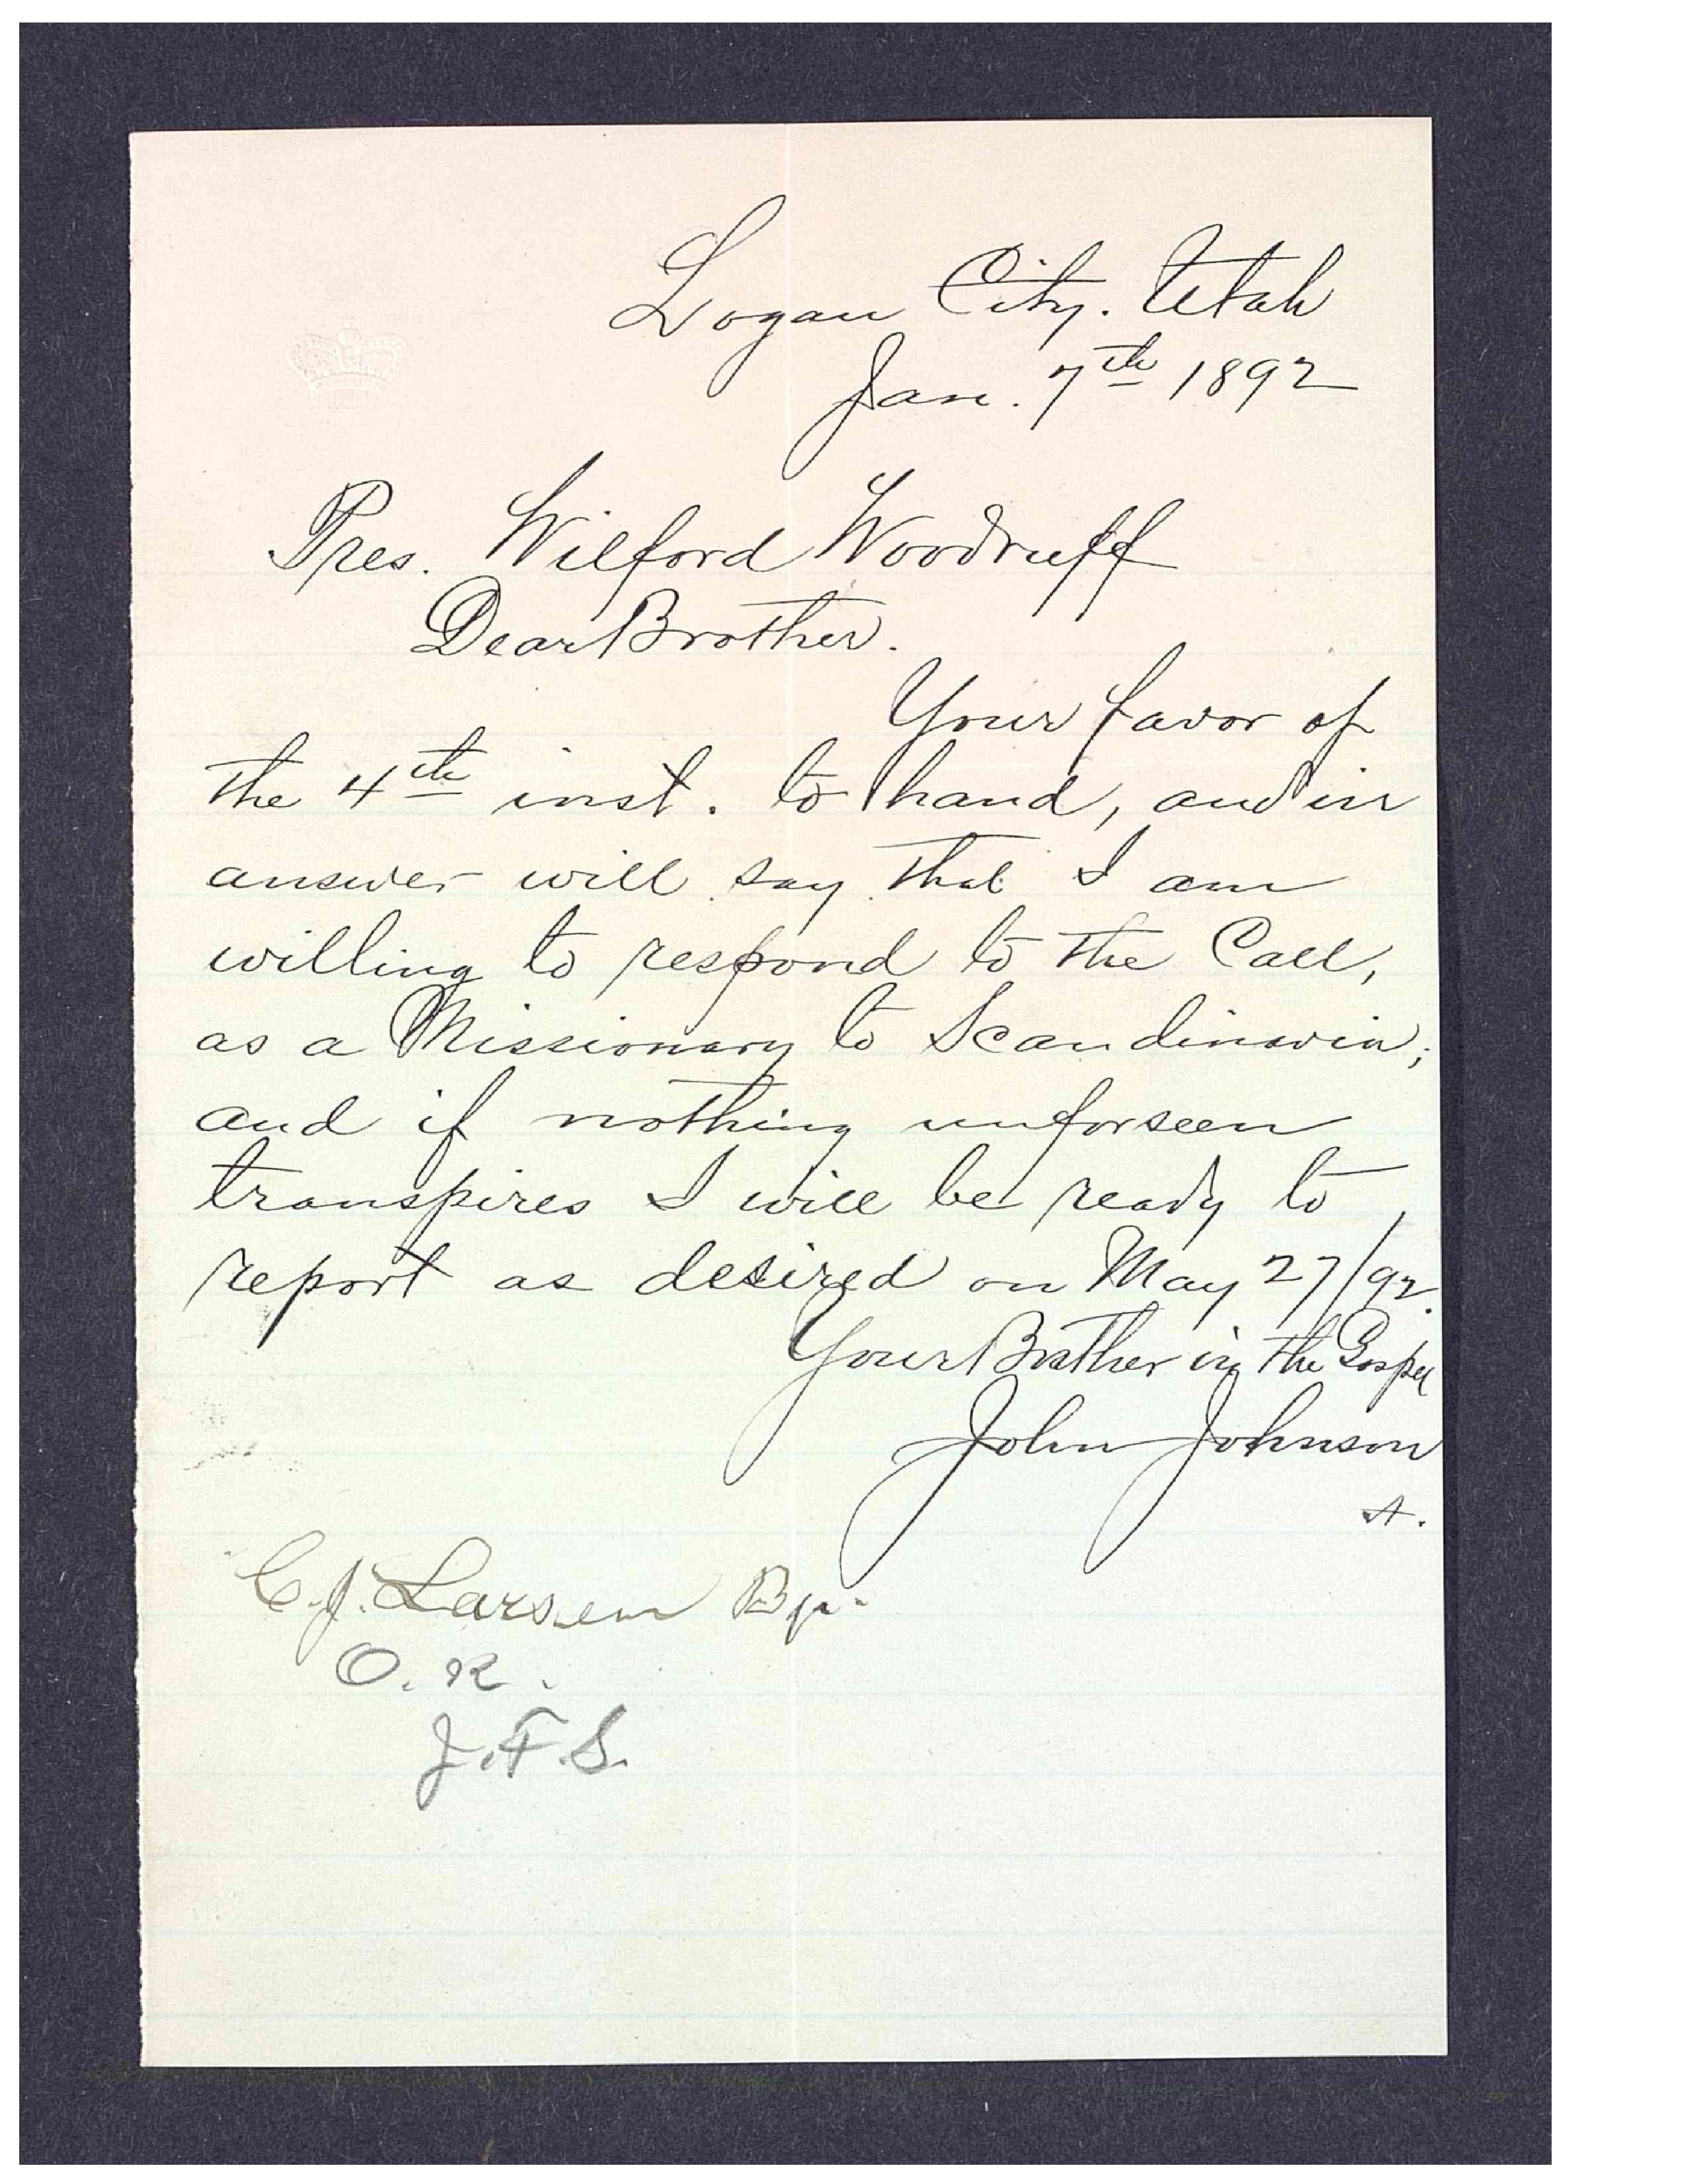 Logan City. Utah
Jan. 7th 1892
Pres. Wilford Woodruff
Dear Brother.
Your favor of
the 4th inst. to hand, and in
answer will say that I am
willing to respond to the Call,
as a Missionary to Scandinavia;
and if nothing unforseen
transpires I will be ready to
report as desired on May 27/92.
Your Brother in the Gospel
John Johnson
A.
C. J. Larsen Bp.
O. K.
J. F. S.